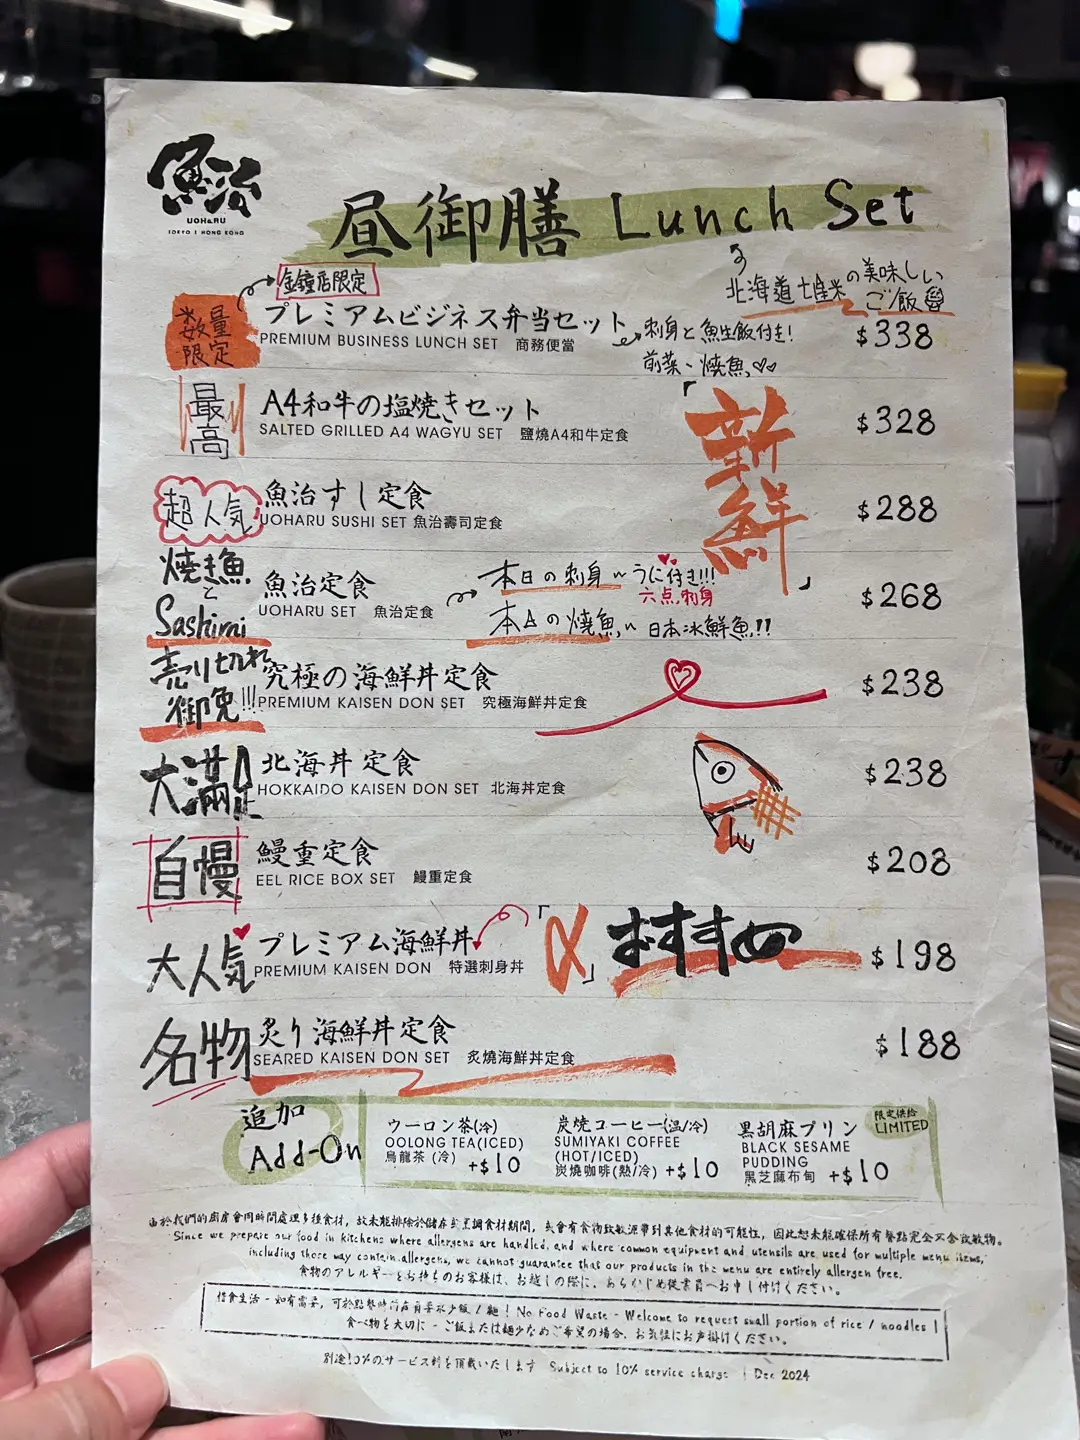 魚治
UOHARU
TOKYO | HONG KONG
昼御膳 Lunch Set
北海道七星米の美味しい
ご飯
金鐘店限定
数量
限定
プレミアムビジネス弁当セット
PREMIUM BUSINESS LUNCH SET 商務便當
刺身と魚生飯付き!
前菜、焼魚
$338
最高
A4和牛の塩焼きセット
SALTED GRILLED A4 WAGYU SET 鹽燒A4和牛定食
$328
「新鮮」
超人気
魚治すし定食
UOHARU SUSHI SET 魚治壽司定食
$288
焼き魚
と
Sashimi
魚治定食
UOHARU SET 魚治定食
本日の刺身~うに付き!!!
六点刺身
の焼魚~日本氷鮮魚!!
$268
売り切れ
御免!!!
究極の海鮮丼定食
PREMIUM KAISEN DON SET 究極海鮮丼定食
$238
大満足
北海丼定食
HOKKAIDO KAISEN DON SET 北海丼定食
$238
自慢
鰻重定食
EEL RICE BOX SET 鰻重定食
$208
大人気
プレミアム海鮮丼
PREMIUM KAISEN DON 特選刺身丼
「〆」おすすめ
$198
名物
炙り海鮮丼定食
SEARED KAISEN DON SET 炙燒海鮮丼定食
$188
追加
Add-On
ウーロン茶(冷)
OOLONG TEA(ICED)
烏龍茶(冷) +$10
炭焼コーヒー(温/冷)
SUMIYAKI COFFEE
(HOT/ICED)
炭燒咖啡(熱/冷) +$10
限定供給
LIMITED
黒胡麻プリン
BLACK SESAME
PUDDING
黑芝麻布甸 +$10
由於我們的廚房會同時間處理多種食材，故未能排除於儲存或烹調食材期間，或會有食物致敏源帶到其他食材的可能性，因此恕未能確保所有餐點完全不含致敏物。
Since we prepare our food in kitchens where allergens are handled, and where common equipment and utensils are used for multiple menu items,
including those may contain allergens, we cannot guarantee that our products in the menu are entirely allergen free.
食物のアレルギーをお持ちのお客様は、お越しの際に、あらかじめ従業員へお申し付けください。
惜食生活 - 如有需要，可於點餐時向店員要求少飯 / 麵！No Food Waste - Welcome to request small portion of rice / noodles !
食べ物を大切に - ご飯または麺少なめご希望の場合、お気軽にお声掛けください。
別途10%のサービス料を頂戴いたします Subject to 10% service charge | Dec 2024